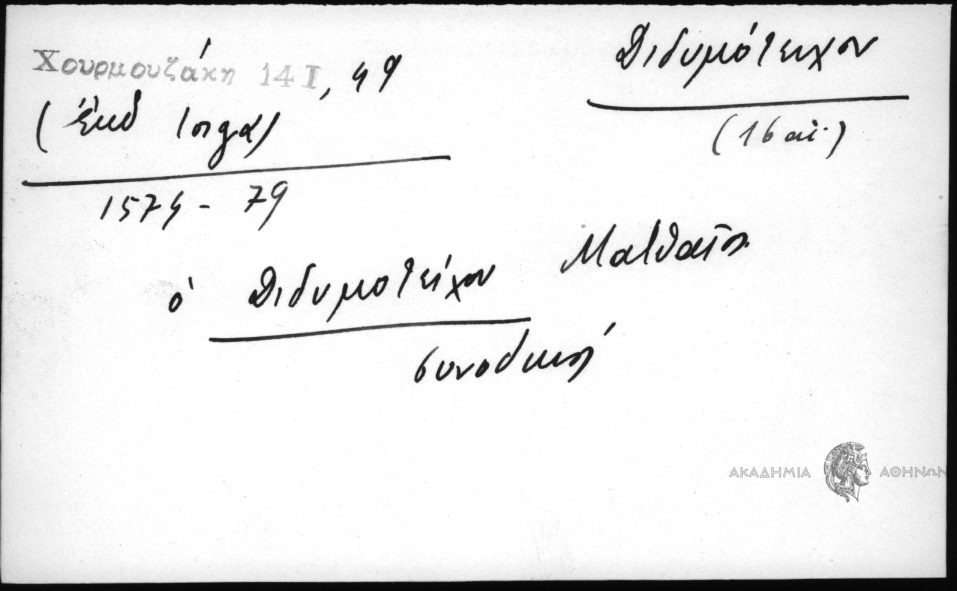 Χουρμουζάκη 14 I, 49
Διδυμότειχον
(16 αἰ.)
(ἐκδ Ιοργα)
1574 - 79
ὁ Διδυμοτείχου Ματθαῖος
συνοδική
ΑΚΑΔΗΜΙΑ ΑΘΗΝΩΝ